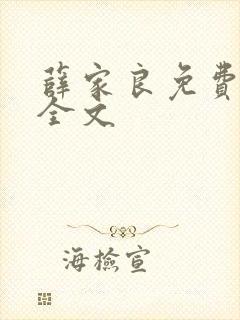 薛家良免費
全文
海檢宣